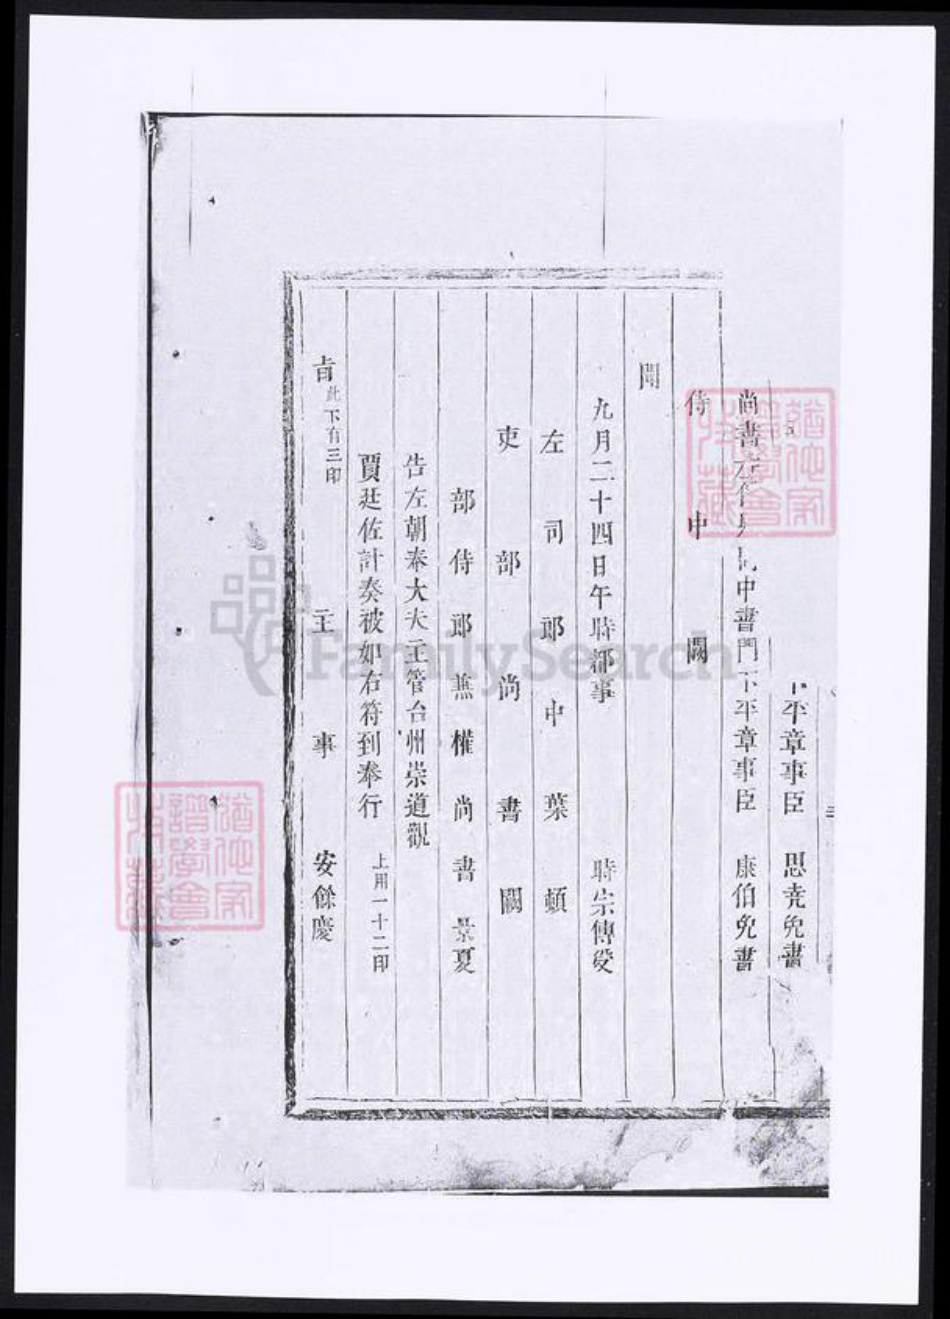 下平章事臣　思堯免書
尚書左僕射同中書門下平章事臣　康伯免書
侍中闕
聞
九月二十四日午時都事　時宗傅受
左司郎中葉顒
吏部尚書闕
部侍郎兼權尚書景夏
告左朝奉大夫主管台州崇道觀
賈廷佐計奏被如右符到奉行　上用一十二印
旨此下有三印　主事　安餘慶
FamilySearch